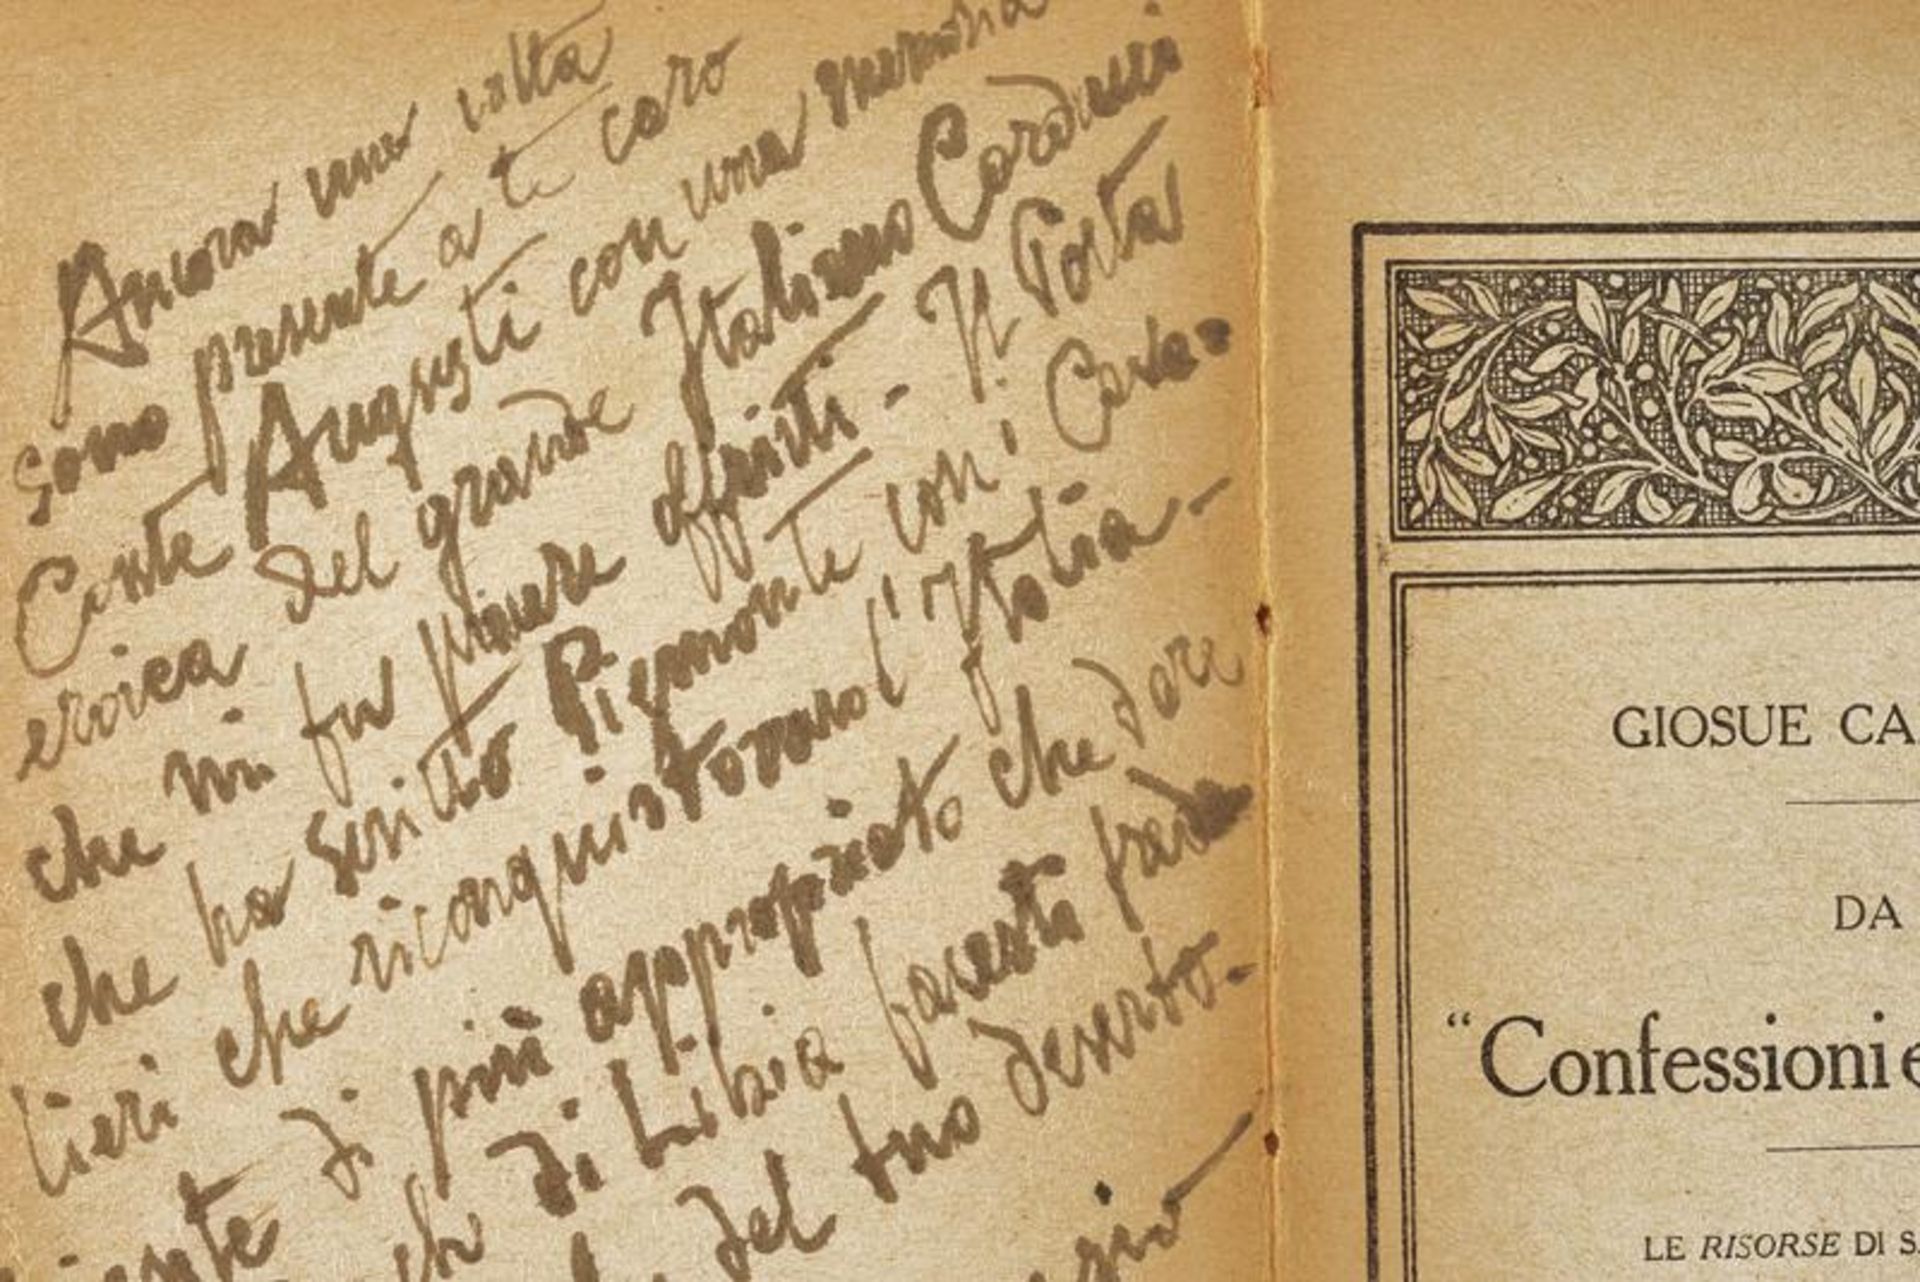 Ancora una volta
sono presente a te caro
Conte Augusti con una memoria
eroica del grande Italiano Carducci
che mi fu pure offerti - Il Porta
che ha scritto Piemonte con i Carta-
lieri che riconquistarono l'Italia -
niente di più appropriato che dare
che di Libia foresta
del tuo deserto -
GIOSUE CA
DA
"Confessioni e
LE RISORSE DI S.